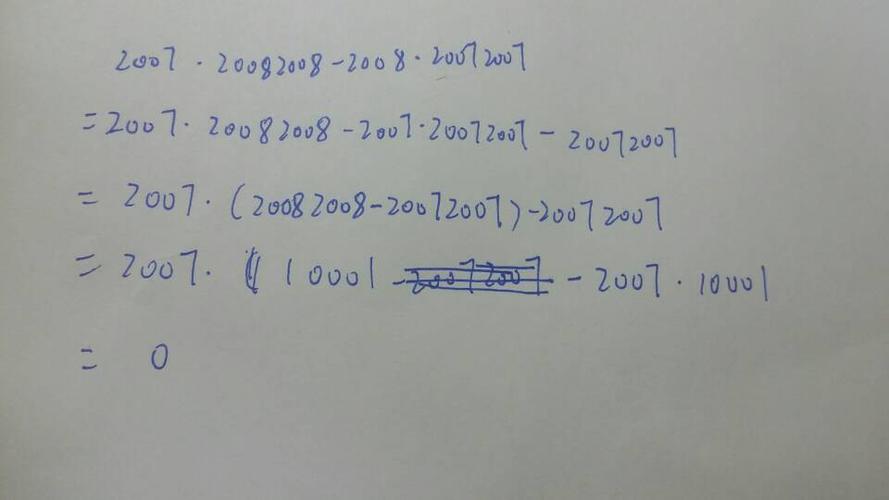 2007 · 20082008 - 2008 · 20072007
= 2007 · 20082008 - 2007 · 20072007 - 20072007
= 2007 · (20082008 - 20072007) - 20072007
= 2007 · 10001 - 2007 · 10001
= 0